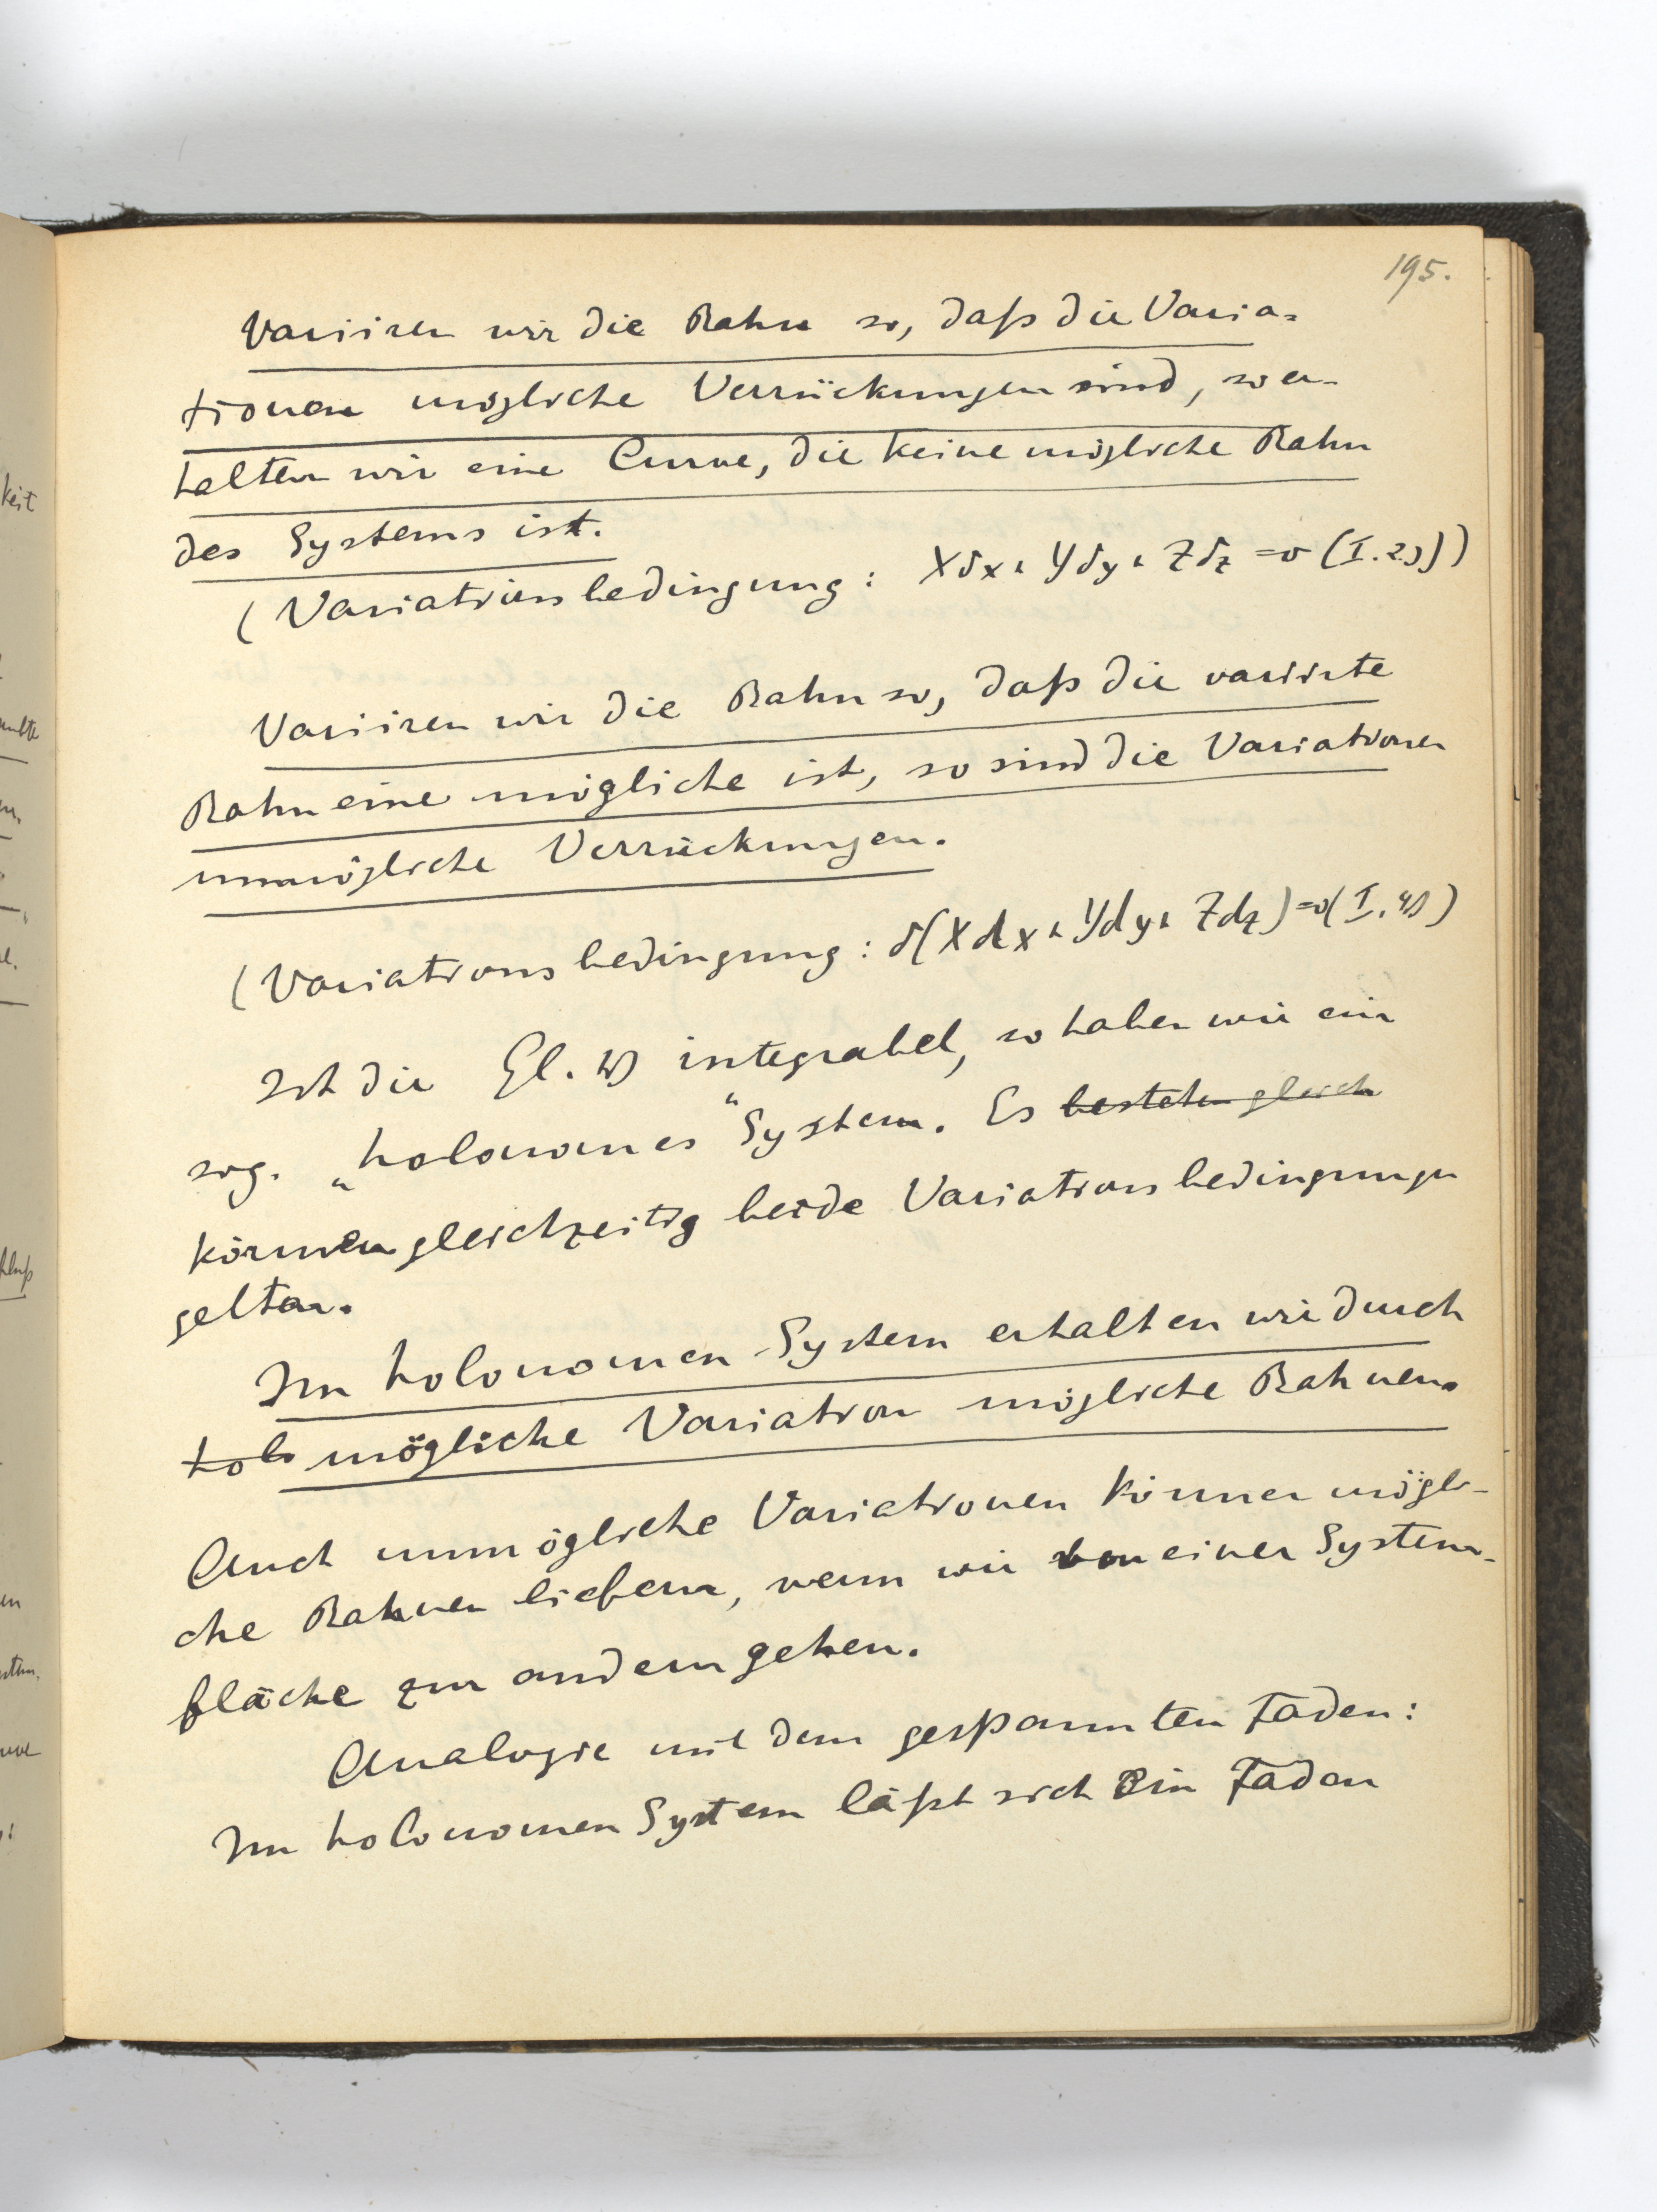 195.
Variiren wir die Bahn so, daß die Varia=
tionen mögliche Verrückungen sind, so er-
halten wir eine Curve, die keine mögliche Bahn
des Systems ist.
(Variationsbedingung: Xδx + Yδy + Zδz = 0 (I. 2))
Variiren wir die Bahn so, daß die variirte
Bahn eine mögliche ist, so sind die Variationen
unmögliche Verrückungen.
(Variationsbedingung: δ(Xdx + Ydy + Zdz) = 0 (I, 4))
Ist die Gl. 1) integrabel, so haben wir ein
sog. „holonomes“ System. Es bestehen gleich
können gleichzeitig beide Variationsbedingungen
gelten.
Im holonomen System erhalten wir durch
holo mögliche Variation mögliche Bahnen.
Auch unmögliche Variationen können mögli-
che Bahnen liefern, wenn wir von einer System-
fläche zur andern gehen.
Analogie mit dem gespannten Faden:
Im holonomen System läßt sich ein Faden
keit